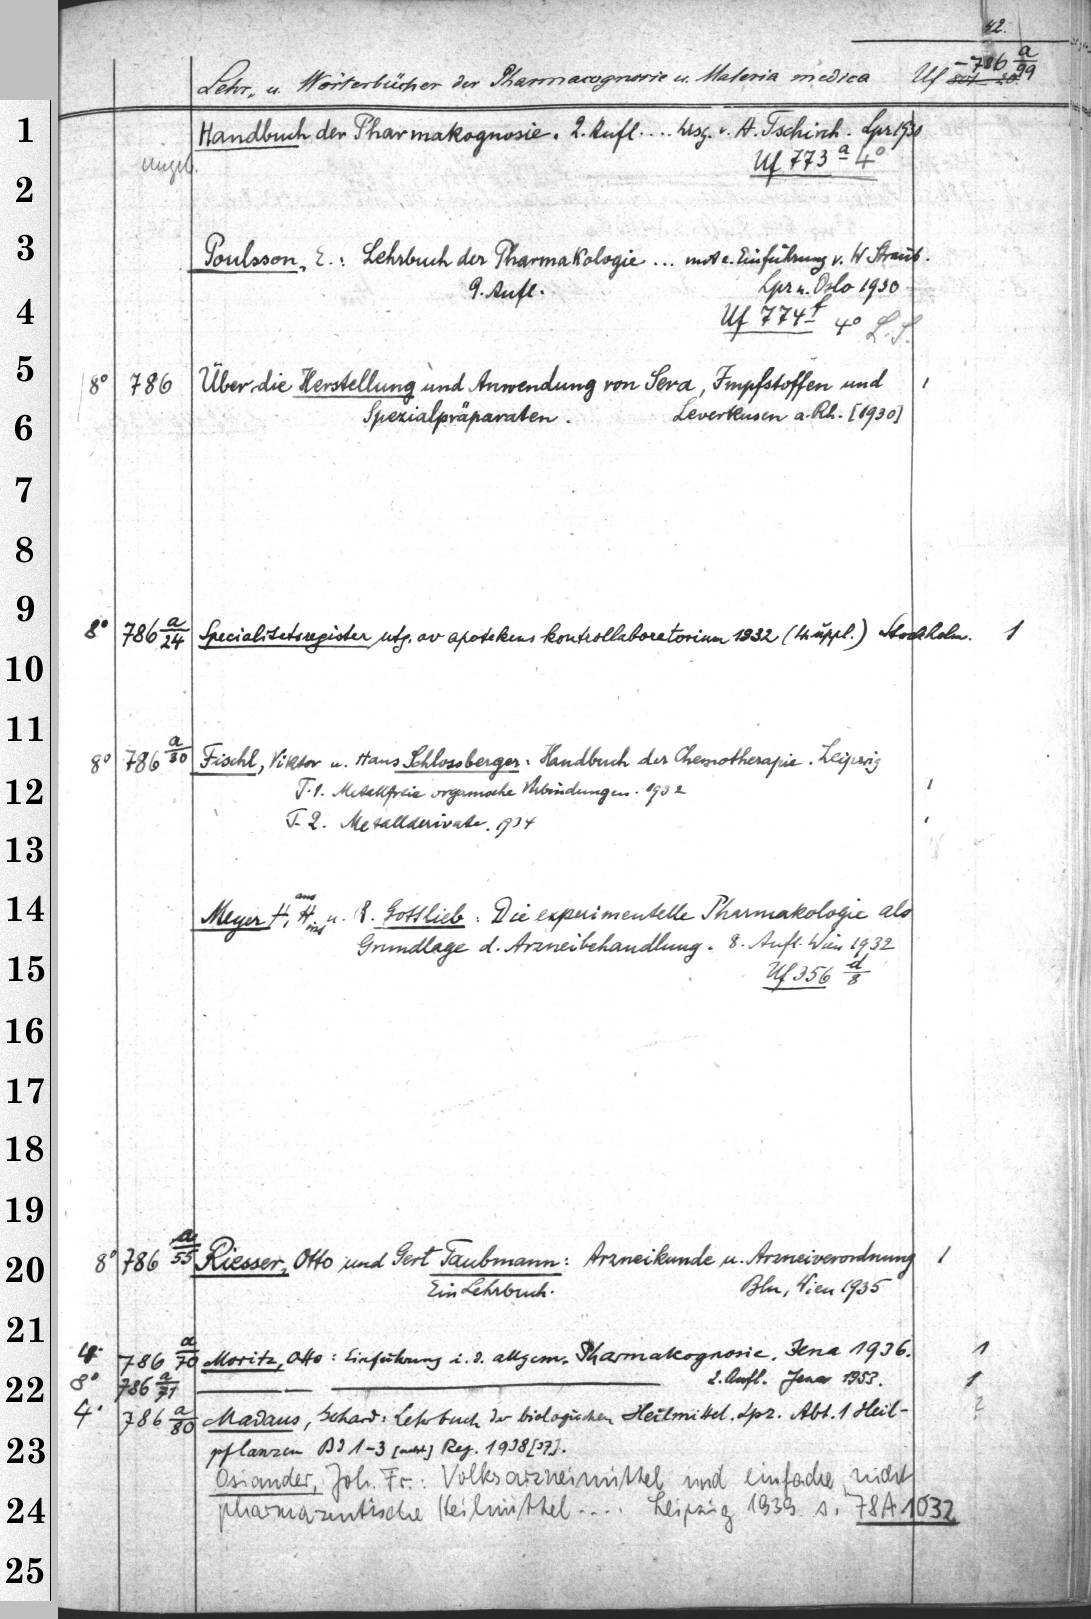 42.
Lehr- u. Wörterbücher der Pharmacognosie u. Materia medica Uf -786 a/99
1
Handbuch der Pharmakognosie. 2. Aufl. ... hrsg. v. A. Tschirch. Lpz 1930
ungeb. Uf 773 a 4°
2
3
Poulsson, E.: Lehrbuch der Pharmakologie ... mit e. Einführung v. W Straub.
9. Aufl. Lpz u. Oslo 1930
4
Uf 774 f 4° L.S.
5
8° 786 Über die Herstellung und Anwendung von Sera, Impfstoffen und 1
6
Spezialpräparaten. Leverkusen a. Rh. [1930]
7
8
9
8° 786 a/24 Specialitetsregister utg. av apotekens kontrollaboratorium 1932 (4. uppl.) Stockholm. 1
10
11
8° 786 a/30 Fischl, Viktor u. Hans Schlossberger: Handbuch der Chemotherapie. Leipzig
12
T. 1. Metallfreie organische Verbindungen. 1932 1
T. 2. Metallderivate. 1934 1
13
14
Meyer, H. Hans u. R. Gottlieb: Die experimentelle Pharmakologie als
Grundlage d. Arzneibehandlung. 8. Aufl. Wien 1932
15
Uf 356 d/8
16
17
18
19
20
8° 786 a/55 Riesser, Otto und Gert Taubmann: Arzneikunde u. Arzneiverordnung 1
Ein Lehrbuch. Bln, Wien 1935
21
4° 786 a/70 Moritz, Otto: Einführung i. d. allgem. Pharmakognosie. Jena 1936. 1
22
8° 786 a/71 —— —— 2. Aufl. Jena 1953. 1
4° 786 a/80 Madaus, Gerhard: Lehrbuch der biologischen Heilmittel. Lpz. Abt. 1 Heil- 2
23
pflanzen Bd 1-3 [nebst] Reg. 1938[37].
Osiander, Joh. Fr.: Volksarzneimittel und einfache, nicht
24
pharmazeutische Heilmittel .... Leipzig 1939 s. 78A1032
25